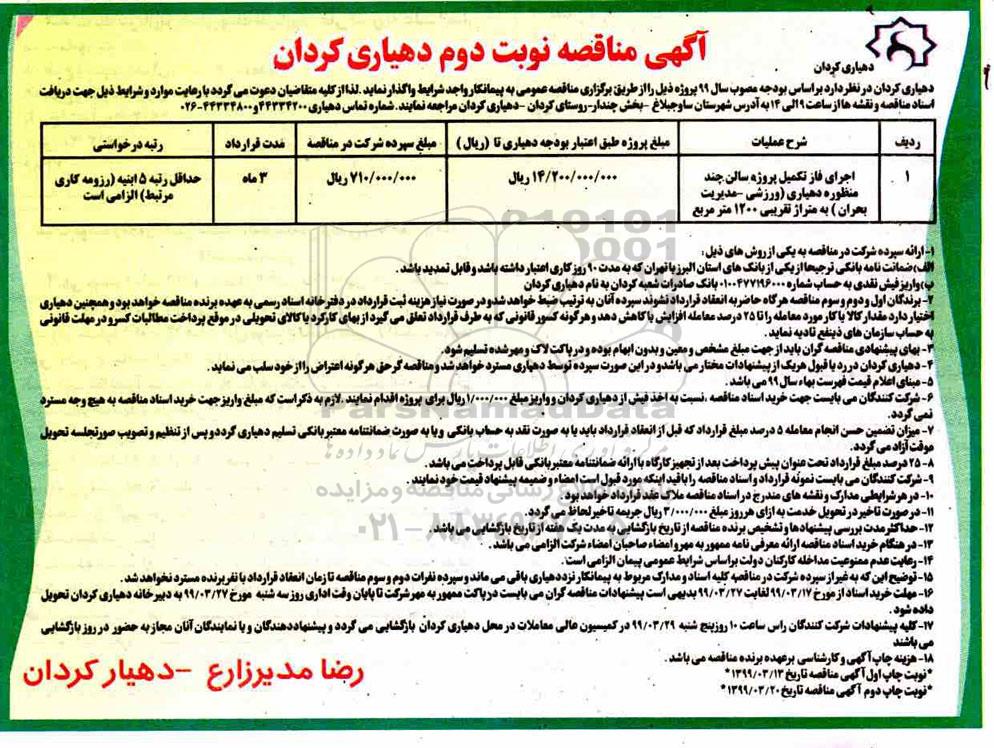 آگهی مناقصه نوبت دوم دهیاری کردان
دهیاری کردان
دهیاری کردان در نظر دارد براساس بودجه مصوب سال ۹۹ پروژه ذیل را از طریق برگزاری مناقصه عمومی به پیمانکار واجد شرایط واگذار نماید .لذا از کلیه متقاضیان دعوت می گردد با رعایت موارد و شرایط ذیل جهت دریافت
اسناد مناقصه و نقشه ها از ساعت ۹ الی ۱۴ به آدرس شهرستان ساوجبلاغ -بخش چندار-روستای کردان -دهیاری کردان مراجعه نمایند . شماره تماس دهیاری ۴۴۳۳۴۲۰۰ و ۴۴۳۳۴۸۰۰-۰۲۶
ردیف شرح عملیات مبلغ پروژه طبق اعتبار بودجه دهیاری تا (ریال) مبلغ سپرده شرکت در مناقصه مدت قرارداد رتبه درخواستی
۱ اجرای فاز تکمیل پروژه سالن چند ۱۴/۲۰۰/۰۰۰/۰۰۰ ریال ۷۱۰/۰۰۰/۰۰۰ ریال ۳ ماه حداقل رتبه ۵ ابنیه (رزومه کاری
منظوره دهیاری (ورزشی -مدیریت مرتبط) الزامی است
بحران ) به متراژ تقریبی ۱۲۰۰ متر مربع
۱- ارائه سپرده شرکت در مناقصه به یکی از روش های ذیل :
الف)ضمانت نامه بانکی ترجیحا از یکی از بانک های استان البرز یا تهران که به مدت ۹۰ روز کاری اعتبار داشته باشد و قابل تمدید باشد .
ب)واریز فیش نقدی به حساب شماره ۰۱۰۰۴۷۷۱۹۶۰۰۰ بانک صادرات شعبه کردان به نام دهیاری کردان .
۲- برندگان اول و دوم و سوم مناقصه هرگاه حاضر به انعقاد قرارداد نشوند سپرده آنان به ترتیب ضبط خواهد شد و در صورت نیاز هزینه ثبت قرارداد در دفترخانه اسناد رسمی به عهده برنده مناقصه خواهد بود و همچنین دهیاری
اختیار دارد مقدار کالا یا کار مورد معامله را تا ۲۵ درصد معامله افزایش یا کاهش دهد و هرگونه کسور قانونی که به طرف قرارداد تعلق می گیرد از بهای کارکرد یا کالای تحویلی در موقع پرداخت مطالبات کسر و در مهلت قانونی
به حساب سازمان های ذینفع تادیه نماید .
۳- بهای پیشنهادی مناقصه گران باید از جهت مبلغ مشخص و معین و بدون ابهام بوده و در پاکت لاک و مهر شده تسلیم شود.
۴- دهیاری کردان در رد یا قبول هریک از پیشنهادات مختار می باشد و در این صورت سپرده توسط دهیاری مسترد خواهد شد و مناقصه گر حق هرگونه اعتراض را از خود سلب می نماید .
۵- مبنای اعلام قیمت فهرست بهاء سال ۹۹ می باشد .
۶- شرکت کنندگان می بایست جهت خرید اسناد مناقصه .نسبت به اخذ فیش از دهیاری کردان و واریز مبلغ ۱/۰۰۰/۰۰۰ ریال برای پروژه اقدام نمایند .لازم به ذکر است که مبلغ واریز جهت خرید اسناد مناقصه به هیچ وجه مسترد
نمی گردد.
۷- میزان تضمین حسن انجام معامله ۵ درصد مبلغ قرارداد که قبل از انعقاد قرارداد باید یا به صورت نقد به حساب بانکی و یا به صورت ضمانتنامه معتبر بانکی تسلیم دهیاری گردد و پس از تنظیم و تصویب صورتجلسه تحویل
موقت آزاد می گردد.
۸- ۲۵ درصد مبلغ قرارداد تحت عنوان پیش پرداخت بعد از تجهیز کارگاه با ارائه ضمانتنامه معتبر بانکی قابل پرداخت می باشد .
۹- شرکت کنندگان می بایست نمونه قرارداد و اسناد مناقصه را با قید اینکه مورد قبول است امضاء و ضمیمه پیشنهاد قیمت خود نمایند .
۱۰- در هر شرایطی مدارک و نقشه های مندرج در اسناد مناقصه ملاک عقد قرارداد خواهد بود .
۱۱- در صورت تاخیر در تحویل خدمت به ازای هر روز مبلغ ۳/۰۰۰/۰۰۰ ریال جریمه تاخیر لحاظ می گردد.
۱۲- حداکثر مدت بررسی پیشنهادها و تشخیص برنده مناقصه از تاریخ بازگشایی به مدت یک هفته از تاریخ بازگشایی می باشد .
۱۳- در هنگام خرید اسناد مناقصه ارائه معرفی نامه ممهور به مهر و امضاء صاحبان امضاء شرکت الزامی می باشد .
۱۴- رعایت عدم ممنوعیت مداخله کارکنان دولت براساس شرایط عمومی پیمان الزامی است .
۱۵- توضیح این که به غیر از سپرده شرکت در مناقصه کلیه اسناد و مدارک مربوط به پیمانکار نزد دهیاری باقی می ماند و سپرده نفرات دوم و سوم مناقصه تا زمان انعقاد قرارداد با نفر برنده مسترد نخواهد شد .
۱۶- مهلت خرید اسناد از مورخ ۹۹/۰۳/۱۷ لغایت ۹۹/۰۳/۲۷ بدیهی است پیشنهادات مناقصه گران می بایست در پاکت ممهور به مهر شرکت تا پایان وقت اداری روز سه شنبه مورخ ۹۹/۰۳/۲۷ به دبیرخانه دهیاری کردان تحویل
داده شود .
۱۷- کلیه پیشنهادات شرکت کنندگان راس ساعت ۱۰ روز پنج شنبه ۹۹/۰۳/۲۹ در کمیسیون عالی معاملات در محل دهیاری کردان بازگشایی می گردد و پیشنهاددهندگان و یا نمایندگان آنان مجاز به حضور در روز بازگشایی
می باشند
۱۸- هزینه چاپ آگهی و کارشناسی برعهده برنده مناقصه می باشد .
*نوبت چاپ اول آگهی مناقصه تاریخ ۱۳۹۹/۰۳/۱۳*
*نوبت چاپ دوم آگهی مناقصه تاریخ ۱۳۹۹/۰۳/۲۰*
رضا مدیرزارع -دهیار کردان
ParsNamadData